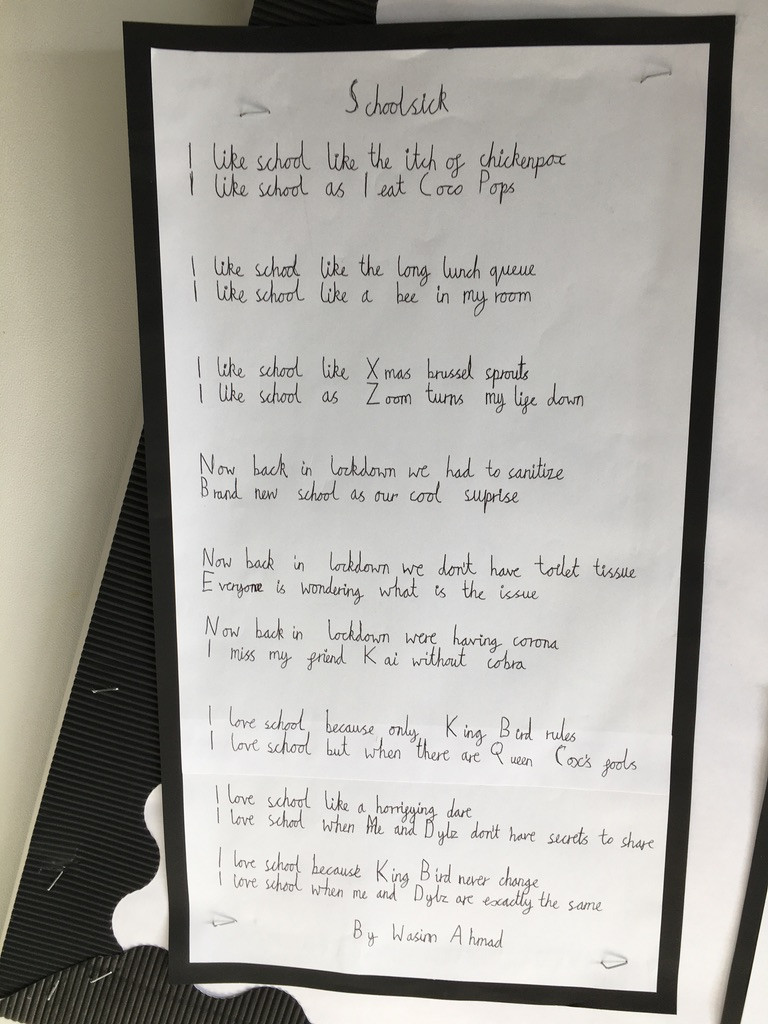 Schoolsick
I like school like the itch of chickenpox
I like school as I eat Coco Pops
I like school like the long lunch queue
I like school like a bee in my room
I like school like Xmas brussel sprouts
I like school as Zoom turns my life down
Now back in lockdown we had to sanitize
Brand new school as our cool suprise
Now back in lockdown we don't have toilet tissue
Everyone is wondering what is the issue
Now back in lockdown were having corona
I miss my friend Kai without cobra
I love school because only King Bird rules
I love school but when there are Queen Cox's fools
I love school like a horrifying dare
I love school when Me and Dylz don't have secrets to share
I love school because King Bird never change
I love school when me and Dylz are exactly the same
By Wasim Ahmad